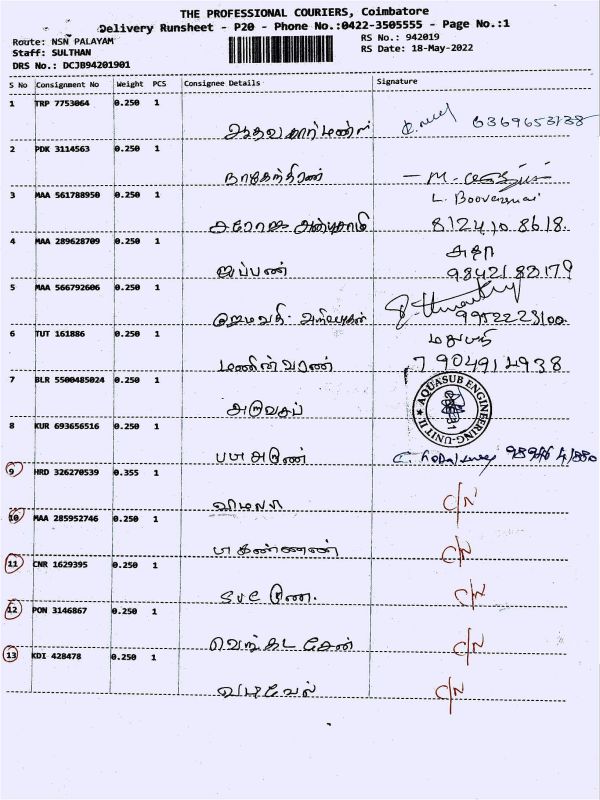 THE PROFESSIONAL COURIERS, Coimbatore
Delivery Runsheet - P20 - Phone No.:0422-3505555 - Page No.:1
Route: NSN PALAYAM
RS No.: 942019
Staff: SULTHAN
RS Date: 18-May-2022
DRS No.: DCJB94201901
S No Consignment No Weight PCS Consignee Details Signature
1 TRP 7753064 0.250 1
6369653738
2 PDK 3114563 0.250 1
நாகேந்திரன் - M.
3 MAA 561788950 0.250 1
L. Booveswari
சரோஜா 8124108618.
4 MAA 289628709 0.250 1
சுதா
ஐயப்பன் 9842183179
5 MAA 566792606 0.250 1
ஹேமவதி 9952223100
6 TUT 161886 0.250 1
மதுபதி
மணிவரன் 7904914938
7 BLR 5500485024 0.250 1
AQUASUB ENGINEERING-UNIT II
8 KUR 693656516 0.250 1
9 HRD 326270539 0.355 1
விமலா C/N
10 MAA 285952746 0.250 1
ப கண்ணன் C/N
11 CNR 1629395 0.250 1
C/N
12 PON 3146867 0.250 1
வெங்கடசேன் C/N
13 KDI 428478 0.250 1
வடிவேல் C/N